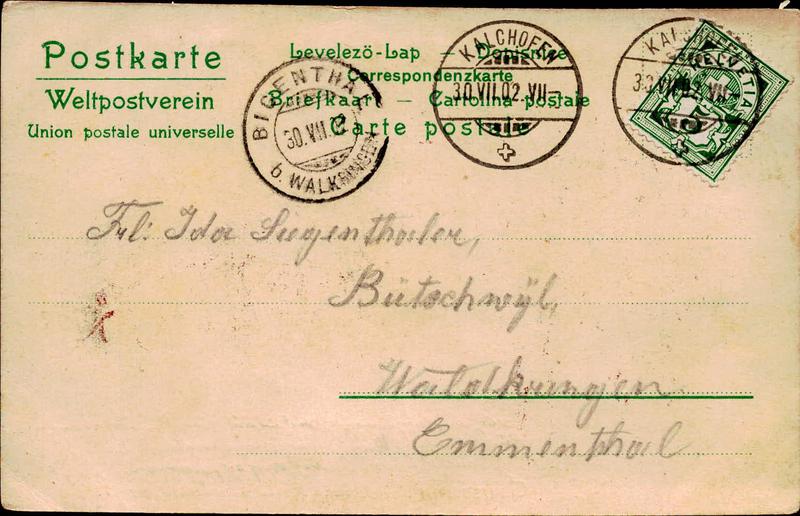 Postkarte
Weltpostverein
Union postale universelle
Levelező-Lap — Dopisnice
Correspondenzkarte
Briefkaart — Cartolina-postale
Carte postale
BIGENTHAL
30.VII.02
b. WALKRINGEN
KALCHOFEN
30.VII.02 VII
KALCHOFEN
30.VII.02 VII
HELVETIA
5
Frl: Ida Siegenthaler,
Bütschwÿl,
Walkringen
Emmenthal